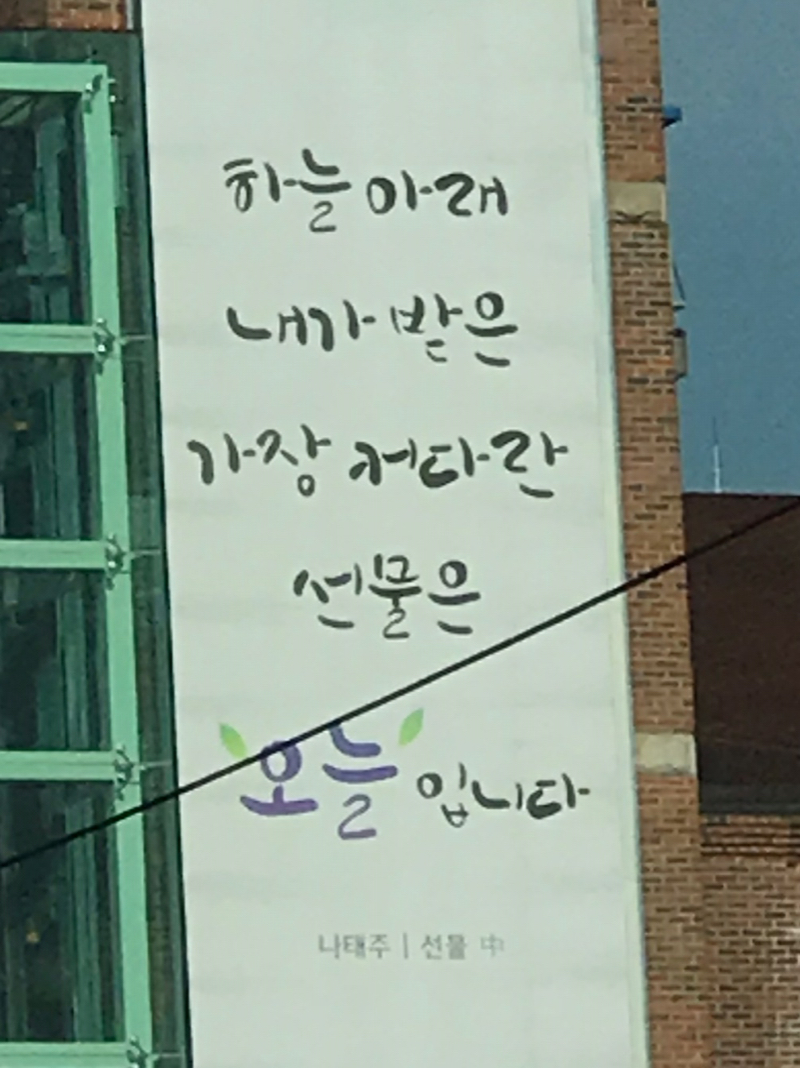 하늘 아래
내가 받은
가장 커다란
선물은
오늘 입니다
나태주 | 선물 中